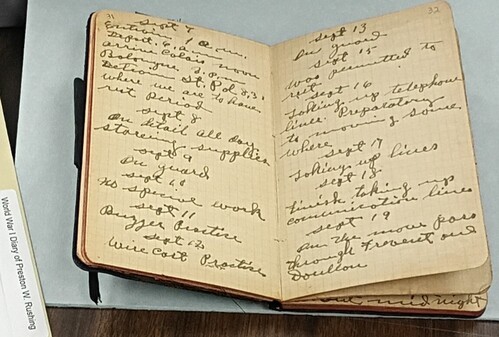 31
Sept 7
Entrain 1 a.m.
Depart 6 a.m.
arrive Calais noon
Bologne, 2 p.m.
Detrain St. Pol 8,31
where we are to have
rest period
Sept 8
On detail all day
storeing supplies
Sept 9
On guard
Sept 10
No special work
Sept 11
Buzzer Practise
Sept 12
Wire Cost Practise
32
Sept 13
On guard
Sept 15
was permitted to
rest
Sept 16
taking up telephone
lines. Preparatory
to moving some
where
Sept 17
taking up lines
Sept 18
finish taking up
communication lines
Sept 19
On the move pass
through Frevent and
Doullon
out midnight
World War I Diary of Preston W. Rushing